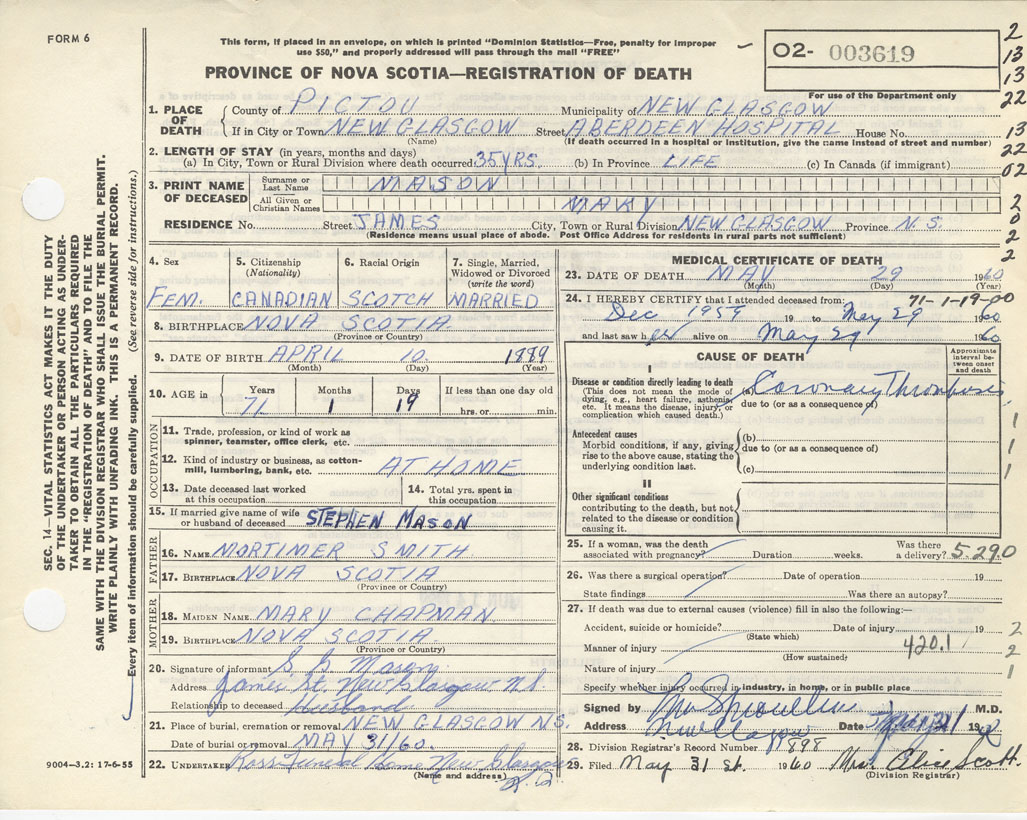 FORM 6
This form, if placed in an envelope, on which is printed "Dominion Statistics—Free, penalty for improper
use $50," and properly addressed will pass through the mail "FREE"
PROVINCE OF NOVA SCOTIA—REGISTRATION OF DEATH
02- 003619
For use of the Department only
2
13
13
22
13
22
02
2
0
2
2
1. PLACE OF DEATH
County of PICTOU Municipality of NEW GLASGOW
If in City or Town NEW GLASGOW Street ABERDEEN HOSPITAL House No.
(Name) (If death occurred in a hospital or institution, give the name instead of street and number)
2. LENGTH OF STAY (in years, months and days)
(a) In City, Town or Rural Division where death occurred 35 YRS. (b) In Province LIFE (c) In Canada (if immigrant)
3. PRINT NAME OF DECEASED
Surname or Last Name MASON
All Given or Christian Names MARY
RESIDENCE No. Street JAMES City, Town or Rural Division NEW GLASGOW Province N.S.
(Residence means usual place of abode. Post Office Address for residents in rural parts not sufficient)
4. Sex FEM.
5. Citizenship (Nationality) CANADIAN
6. Racial Origin SCOTCH
7. Single, Married, Widowed or Divorced (write the word) MARRIED
8. BIRTHPLACE NOVA SCOTIA
(Province or Country)
9. DATE OF BIRTH APRIL 10. 1889
(Month) (Day) (Year)
10. AGE in Years Months Days If less than one day old
71 1 19 hrs. or min.
OCCUPATION
11. Trade, profession, or kind of work as
spinner, teamster, office clerk, etc.
12. Kind of industry or business, as cotton-
mill, lumbering, bank, etc. AT HOME
13. Date deceased last worked
at this occupation
14. Total yrs. spent in
this occupation
15. If married give name of wife
or husband of deceased STEPHEN MASON
FATHER
16. NAME MORTIMER SMITH
17. BIRTHPLACE NOVA SCOTIA
(Province or Country)
MOTHER
18. MAIDEN NAME MARY CHAPMAN
19. BIRTHPLACE NOVA SCOTIA
(Province or Country)
20. Signature of informant S. G Mason
Address James St. New Glasgow N.S
Relationship to deceased husband
21. Place of burial, cremation or removal NEW GLASGOW N.S.
Date of burial or removal MAY 31/60.
22. UNDERTAKER Ross Funeral Home New Glasgow
(Name and address)
MEDICAL CERTIFICATE OF DEATH
23. DATE OF DEATH MAY 29 1960
(Month) (Day) (Year)
24. I HEREBY CERTIFY that I attended deceased from: 71-1-19-00
Dec 1959 19 to May 29 1960
and last saw her alive on May 29 1960
CAUSE OF DEATH
Approximate interval between onset and death
I
Disease or condition directly leading to death
(This does not mean the mode of
dying, e.g., heart failure, asthenia,
etc. It means the disease, injury, or
complication which caused death.)
(a) Coronary Thrombosis
due to (or as a consequence of)
Antecedent causes
Morbid conditions, if any, giving
rise to the above cause, stating the
underlying condition last.
(b)
due to (or as a consequence of)
(c)
1
1
1
II
Other significant conditions
contributing to the death, but not
related to the disease or condition
causing it.
25. If a woman, was the death
associated with pregnancy? Duration weeks. Was there
a delivery? 5-290
26. Was there a surgical operation? Date of operation 19
State findings Was there an autopsy?
27. If death was due to external causes (violence) fill in also the following:—
Accident, suicide or homicide? Date of injury 19 2
(State which)
Manner of injury 420.1 2
(How sustained)
Nature of injury 1
Specify whether injury occurred in industry, in home, or in public place
Signed by M.D.
Address New Glasgow Date
28. Division Registrar's Record Number 898
29. Filed May 31 st. 1960 Mrs. Alice Scott.
(Division Registrar)
SEC. 14—VITAL STATISTICS ACT MAKES IT THE DUTY
OF THE UNDERTAKER OR PERSON ACTING AS UNDER-
TAKER TO OBTAIN ALL THE PARTICULARS REQUIRED
IN THE "REGISTRATION OF DEATH" AND TO FILE THE
SAME WITH THE DIVISION REGISTRAR WHO SHALL ISSUE THE BURIAL PERMIT.
WRITE PLAINLY WITH UNFADING INK. THIS IS A PERMANENT RECORD.
Every item of information should be carefully supplied. (See reverse side for instructions.)
9004—3.2: 17-6-55